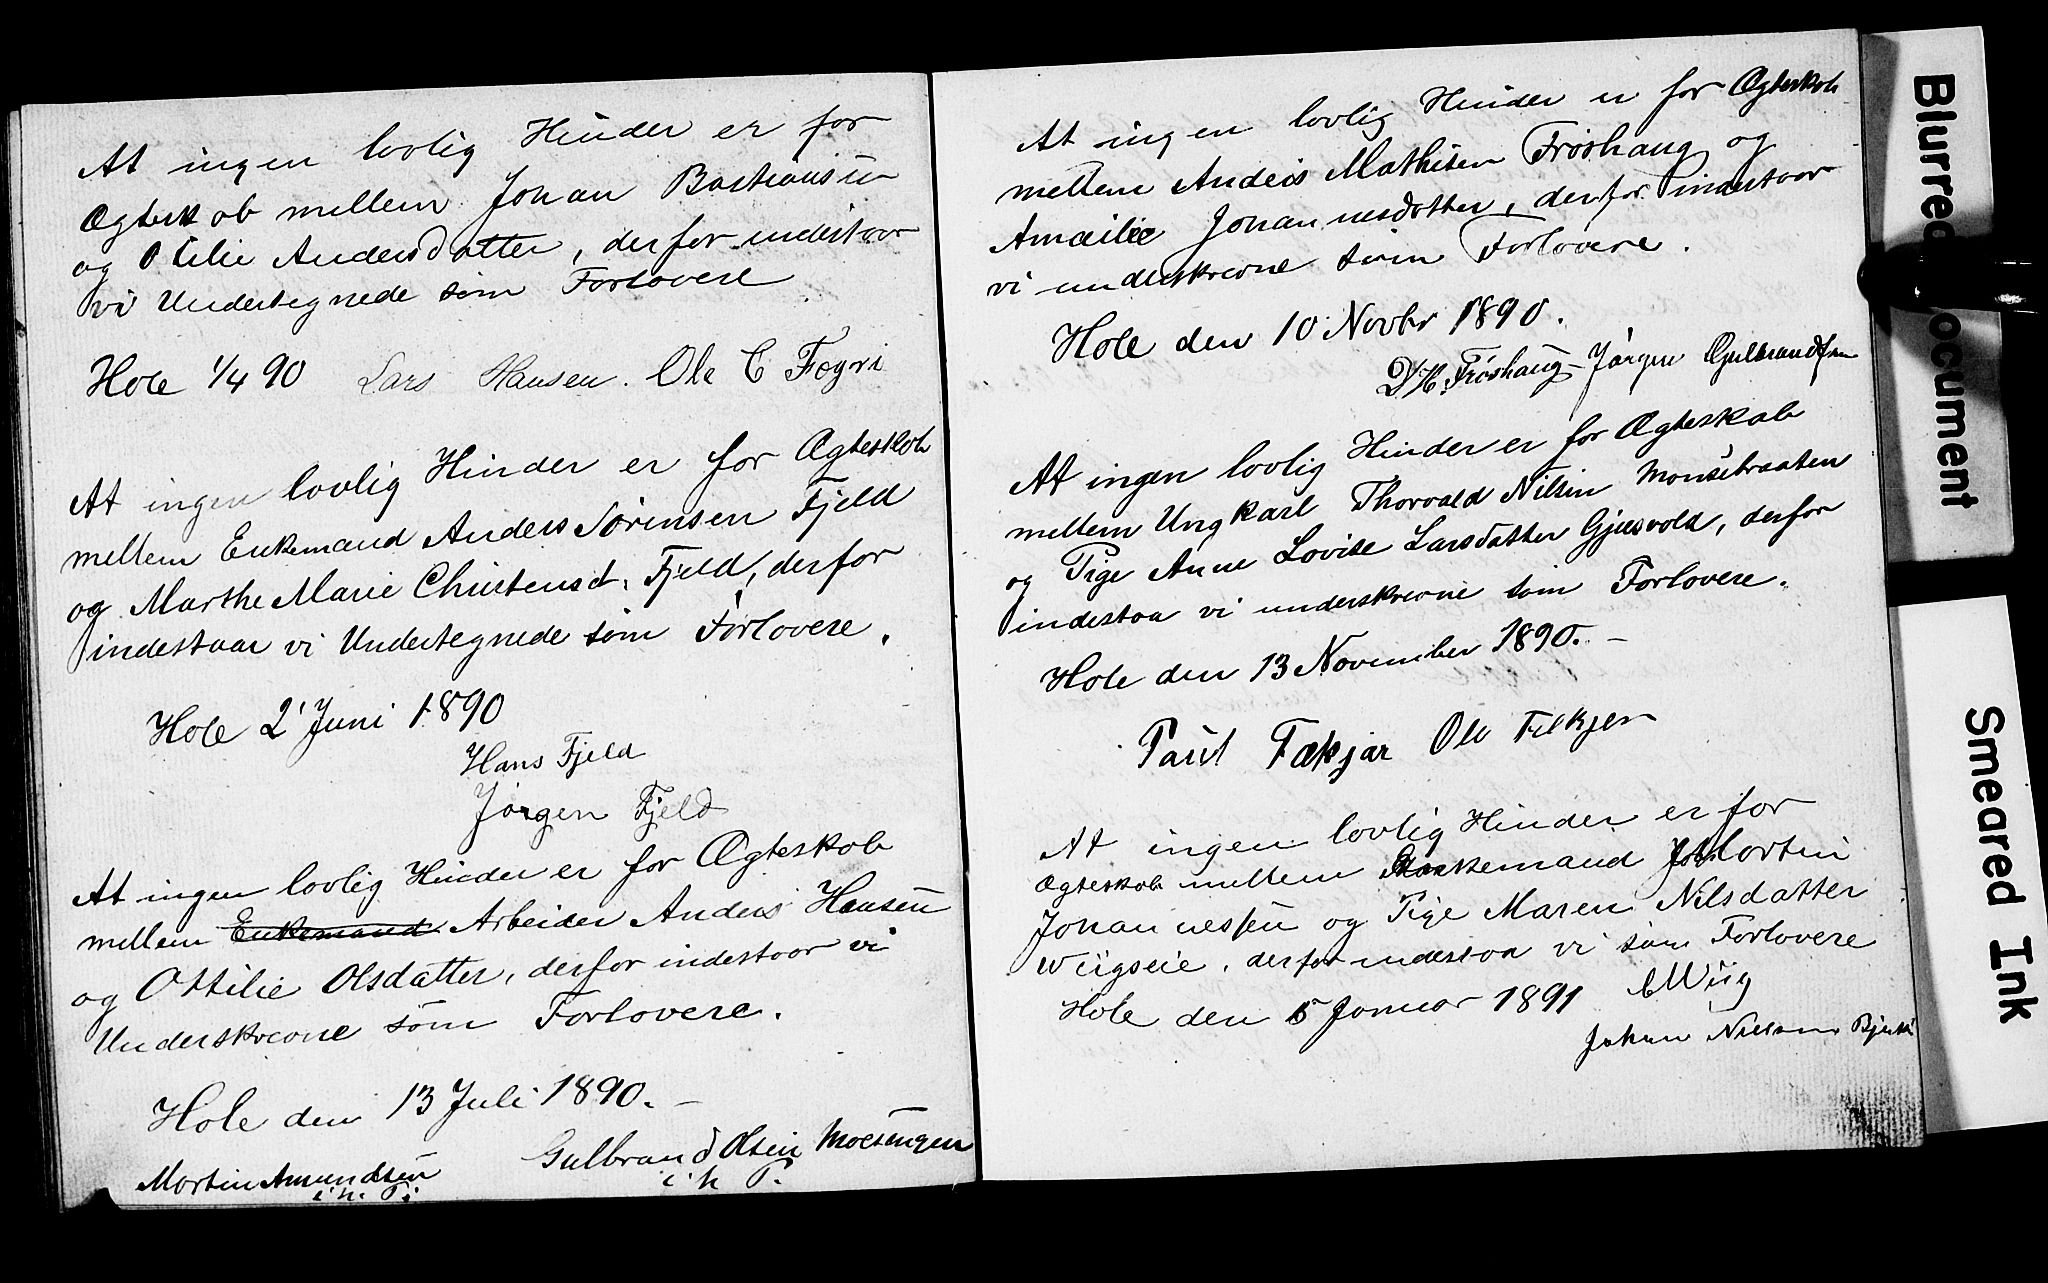 At ingen lovlig Hinder er for
Ægteskab mellem Johan Bastiansen
og Otilie Andersdatter, derfor indestaar
vi Undertegnede som Forlovere
Hole 1/4 90 Lars Hansen. Ole C Fægri
At ingen lovlig Hinder er for Ægteskab
mellem Enkemand Anders Sørensen Fjeld
og Marthe Marie Christensd. Fjeld, derfor
indestaar vi Undertegnede som Forlovere.
Hole 2' Juni 1890
Hans Fjeld
Jørgen Fjeld
At ingen lovlig Hinder er for Ægteskab
mellem Enkemand Arbeider Anders Hansen
og Ottilie Olsdatter, derfor indestaar vi
Underskrevne som Forlovere.
Hole den 13 Juli 1890. –
Martin Amundsen Gulbrand Olsen Moesengen
i. h. P. i h P.
At ingen lovlig Hinder er for Ægteskab
mellem Anders Mathisen Frøshaug og
Amailie Johannesdatter, derfor indestaar
vi underskrevne som Forlovere.
Hole den 10 Novbr 1890.
Frøshaug – Jørgen Gulbrandsen
At ingen lovlig Hinder er for Ægteskab
mellem Ungkarl Thorvald Nilsen Monsebraaten
og Pige Anne Lovise Larsdatter Gjesvold, derfor
indestaa vi underskrevne som Forlovere.
Hole den 13 November 1890. –
Paul Fækjær Ole Filkjer
At ingen lovlig Hinder er for
Ægteskab mellem Enkemand Martin
Johannessen og Pige Maren Nilsdatter
Wiigseie, derfor indestaa vi som Forlovere
Hole den 5 Januar 1891 Wiig
Johan Nielsen
Blurred Document
Smeared Ink